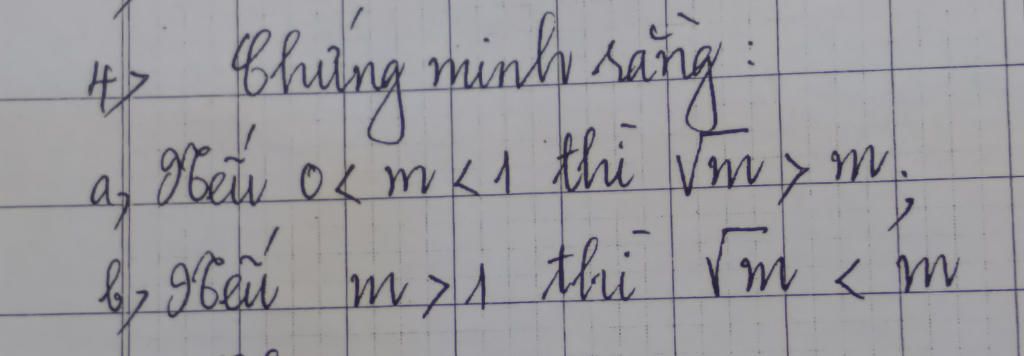 4> Chứng minh rằng:
a, Nếu 0 < m < 1 thì √m > m.
b, Nếu m > 1 thì √m < m